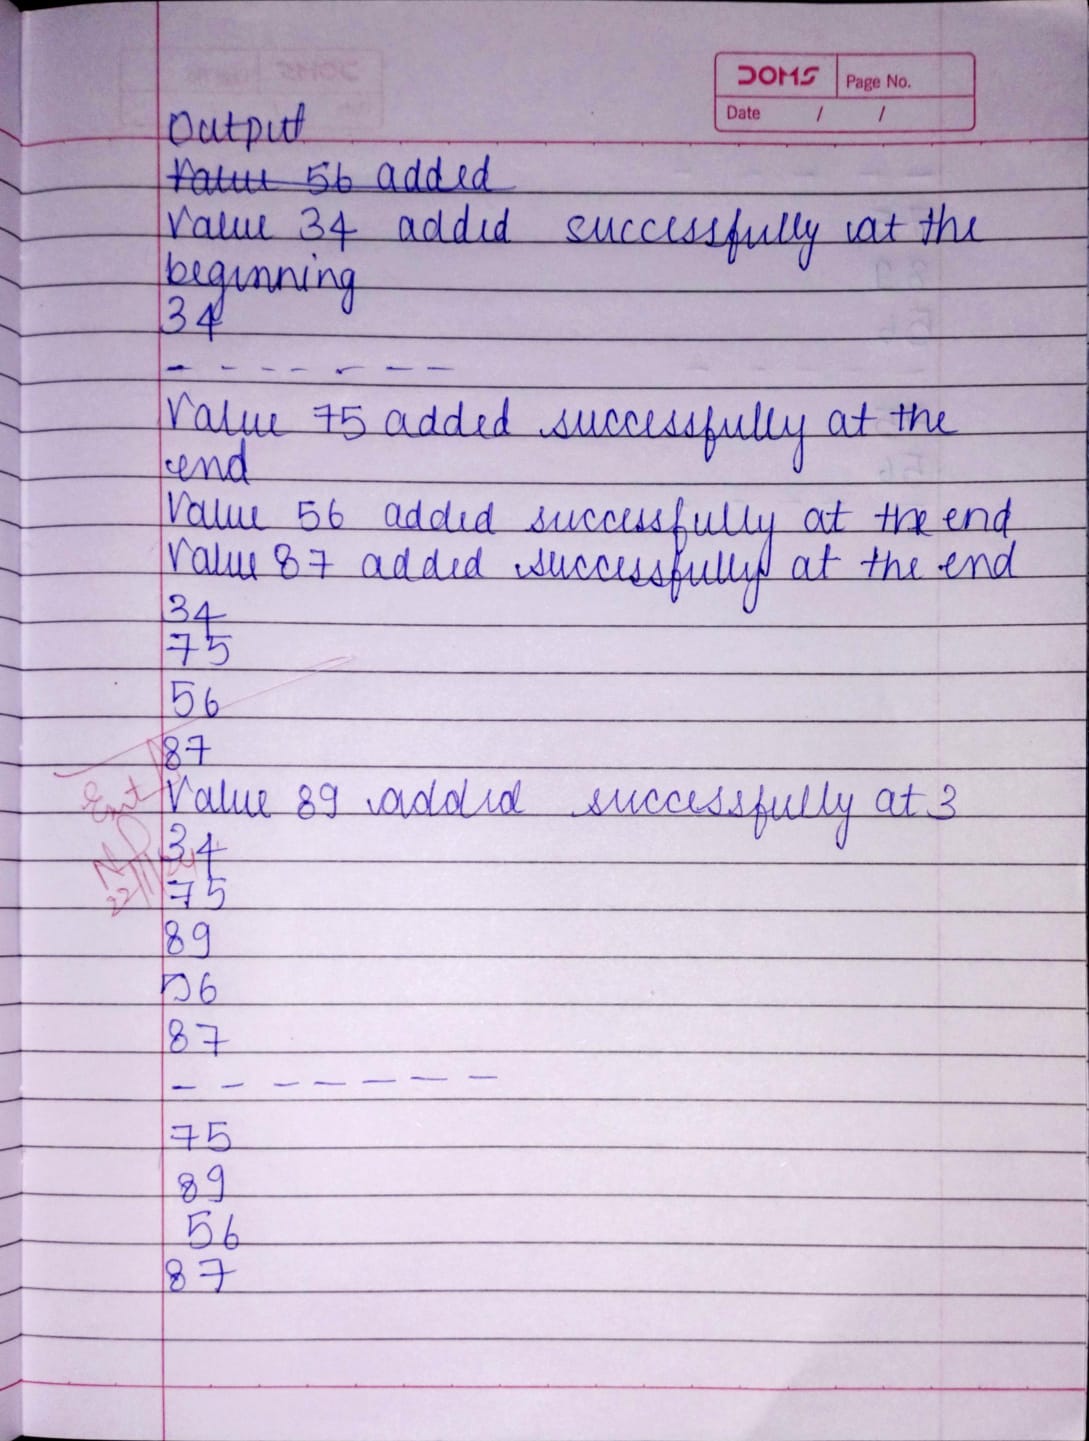 DOMS
Page No.
Date / /
Output
Value 56 added
Value 34 added successfully at the
beginning
34
- - - - - - -
Value 75 added successfully at the
end
Value 56 added successfully at the end
Value 87 added successfully at the end
34
75
56
87
Value 89 added successfully at 3
34
75
89
56
87
- - - - - - -
75
89
56
87